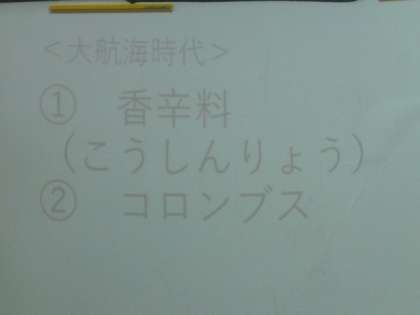 ＜大航海時代＞
① 香辛料
（こうしんりょう）
② コロンブス